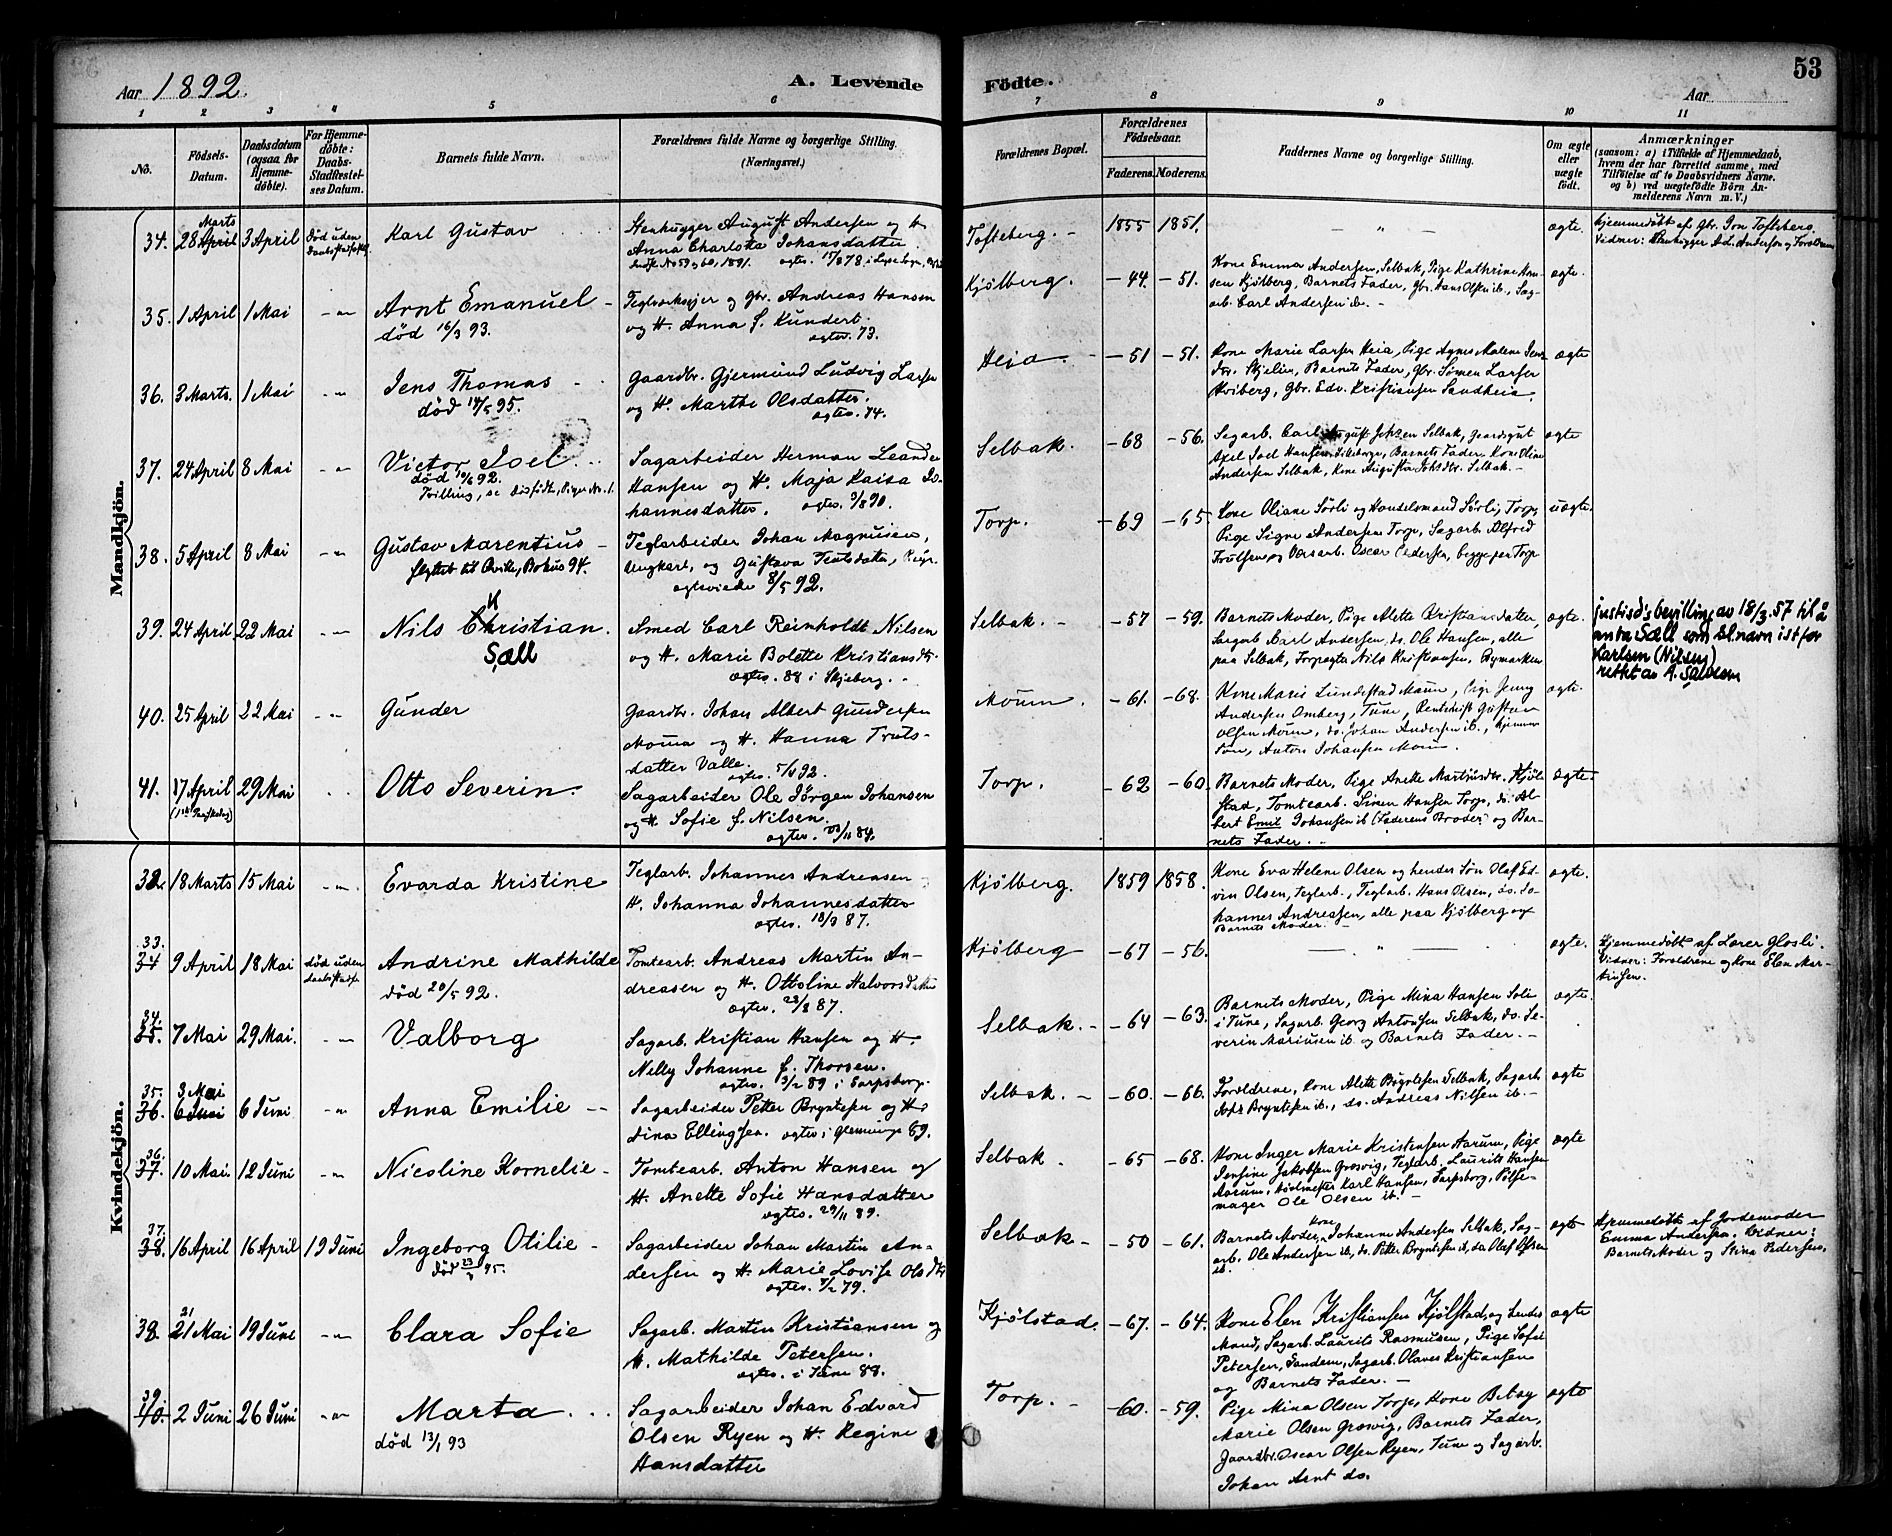 Aar 1892.
A. Levende
Födte.
53
Aar
1 2 3 4 5 6 7 8 9 10 11
No.
Födsels-Datum.
Daabsdatum (ogsaa for Hjemmedöbte).
For Hjemmedöbte: Daabs-Stadfestelses Datum.
Barnets fulde Navn.
Forældrenes fulde Navne og borgerlige Stilling. (Næringsvei.)
Forældrenes Bopæl.
Forældrenes Födselsaar.
Faderens. Moderens.
Faddernes Navne og borgerlige Stilling.
Om ægte eller uægte födt.
Anmærkninger
(saasom: a) i Tilfælde af Hjemmedaab, hvem der har forrettet samme, med Tilföielse af to Daabsvidners Navne, og b) ved uægtefödte Börn Anmelderens Navn m. V.)
Mandkjön.
34. 28 Marts 3 April død uden Daabsstadfestelse Karl Gustav Stenhugger August Andersen og H. Anna Charlotta Johansdatter. Tofteberg. 1855 1851. ægte. Hjemmedøbt af Gbr. Jon Tofteberg. Vidner: Stenhugger A. L. Andersen og Forældrene
35. 1 April 1 Mai Arnt Emanuel død 16/3 93. Teglværksejer og Gbr. Andreas Hansen og H. Anna f. Kundert. ægtev. 73. Kjølberg. 44 51. Kone Emma Andersen, Selbak, Pige Kathrine Hansen Kjølberg, Barnets Fader, Gbr. Hans Olsen ib., Sagarb. Carl Andersen ib. ægte.
36. 3 Marts. 1 Mai Jens Thomas død 14/5 95. Gaardbr. Gjermund Ludvig Larsen og H. Marthe Olsdatter. ægtev. 74. Heia. 51 51. Kone Marie Larsen Heia, Pige Agnes Malene Jensdtr. Skjelin, Barnets Fader, Gbr. Simen Larsen Hviberg, Gbr. Edv. Kristiansen Sandheia. ægte
37. 24 April 8 Mai Victor Joel død 10/6 92. Tvilling, se Dødfødte, Piger No. 1. Sagarbeider Herman Leander Hansen og H. Maja Kaisa Johannesdatter. ægtev. 9/8 90. Selbak. 68 56. Sagarb. Carl August Jensen Selbak, Gaardsgut Axel Joel Hansen, Barnets Fader, Kone Oline Andersen Selbak, Kone Augusta Selbak. ægte
38. 5 April 8 Mai Gustav Marentius flyttet til Qville, Bohus 94. Teglarbeider Johan Magnusen, Ungkarl, og Gustava Pige. ægteviede 8/5 92. Torp. 69 65. Kone Oliane Sørli og Handelsmand Sørli, Torp, Pige Signe Andersen Torp, Sagarb. Alfred Trulsen og Oscar Pedersen, begge paa Torp uægte.
39. 24 April 22 Mai Nils Christian. K Sæll Smed Carl Reinholdt Nilsen og H. Marie Bolette Kristiansdtr. ægtev. 88 i Skjeberg. Selbak. 57 59. Barnets Moder, Pige Alette Kristiansdatter, Sagarb. Carl Andersen, do. Ole Hansen, alle paa Selbak, Nils Kristiansen, Bymarken ægte. justisd's bevilling av 18/3.57 til å anta Sæll som sl.navn istfor Karlsen (Nilsen) rettet av A. Salvesen
40. 25 April 22 Mai Gunder Gaardbr. Johan Albert Gundersen Moum og H. Hanna Trulsdatter Valle. ægtev. 92. Moum. 61. 68. Kone Marie Lundestad Moum, Pige Jenny Andersen Omberg, Tune, Gustav Olsen Moum, do. Johan Andersen ib., Anton Johansen Moum. ægte.
41. 17 April 29 Mai Otto Severin. Sagarbeider Ole Jørgen Johansen og H. Sofie f. Nilsen. ægtev. 23/11 84. Torp. 62 60. Barnets Moder, Pige Anette Martinsdtr. Kjølstad, Tomtearb. Simen Hansen Torp, do. Albert Emil Johansen ib. (Faderens Broder) og Barnets Fader. ægte
Kvindekjön.
32. 18 Marts 15 Mai Evarda Kristine Teglarb. Johannes Andreasen H. Johanna Johannesdatter ægtev. 18/3 87. Kjølberg. 1859 1858. Kone Eva Helene Olsen og hendes Søn Olaf Edvin Olsen, Teglarb., Teglarb. Hans Olsen, do. Johannes Andreasen, alle paa Kjølberg og Barnets Moder. ægte.
33. 34 9 April 18 Mai død uden Daabsstadf. Andrine Mathilde død 20/5 92. Tomtearb. Andreas Martin Andreasen og H. Ottoline Halvorsdatter ægtev. 28/8 87. Kjølberg 67 56. ægte. Hjemmedøbt af Lærer Glosli. Vidner: Forældrene og Kone Elen Martinsen.
34. 35. 7 Mai 29 Mai. Valborg Sagarb. Kristian Hansen og H. Nelly Johanne f. Thorsen. ægtev. 3/2 89 i Sarpsborg. Selbak. 64 63. Barnets Moder, Pige Mina Hansen Soli i Tune, Sagarb. Georg Antonsen Selbak, do. Severin Mariusen ib. og Barnets Fader. ægte.
35. 36. 3 Mai 6 Juni Anna Emilie Sagarbeider Petter Bryntesen og H. Lina Ellingsen. ægtev. i Glemminge 89. Selbak. 60. 66. Forældrene, Kone Alette Bryntesen Selbak, Sagarb. Bryntesen ib., do. Andreas Nilsen ib. ægte
36. 37. 10 Mai 12 Juni Nicoline Kornelie Tomtearb. Anton Hansen og H. Anette Sofie Hansdatter ægtev. 29/11 89. Selbak. 65 68. Kone Inger Marie Kristensen Aarum, Pige Jensine Jakobsen Grosvig, Teglarb. Laurits Hansen Aarum, Karl Hansen, Sarpsborg, Pølsemager Ole Olsen ib. ægte
37. 38. 16 April 16 April 19 Juni Ingeborg Otilie død 23/3 95. Sagarbeider Johan Martin Andersen og H. Marie Lovise Olsdtr ægtev. 7/2 79. Selbak 50 61. Barnets Moder, Kone Johanne Andersen Selbak, Sagarb. Ole Andersen ib, do. Petter Bryntesen ib, do Olaf Olsen ib. ægte Hjemmedøbt af Jordemoder Emma Andersen. Vidner: Barnets Moder og Stina Pedersen.
38. 21 Mai 19 Juni Clara Sofie Sagarb. Martin Kristiansen og H. Mathilde Petersen. ægtev. i Tune 88. Kjølstad. 67. 64. Kone Elen Kristiansen Kjølstad og hendes Mand, Sagarb. Laurits Rasmussen, Pige Sofie Petersen, Sandem, Sagarb. Olaves Kristiansen og Barnets Fader. ægte
39. 40. 2 Juni 26 Juni Marta død 13/1 93 Sagarbeider Johan Edvard Olsen Ryen og H. Regine Hansdatter Torp. 60. 59. Pige Mina Olsen Torp, Kone Betsy Marie Olsen Grosvig, Barnets Fader, Gaardbr. Oscar Olsen Ryen, Tune og Sagarb. Johan Arnt do. ægte